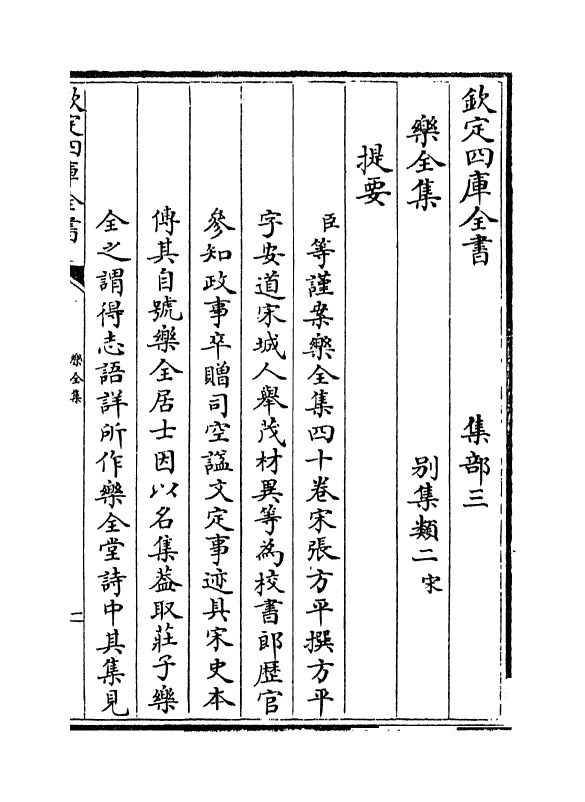 欽定四庫全書　集部三
樂全集　別集類二宋
提要
臣等謹案樂全集四十卷宋張方平撰方平
字安道宋城人舉茂材異等為校書郎歷官
參知政事卒贈司空諡文定事迹具宋史本
傳其自號樂全居士因以名集葢取莊子樂
全之謂得志語詳所作樂全堂詩中其集見
欽定四庫全書　樂全集　一